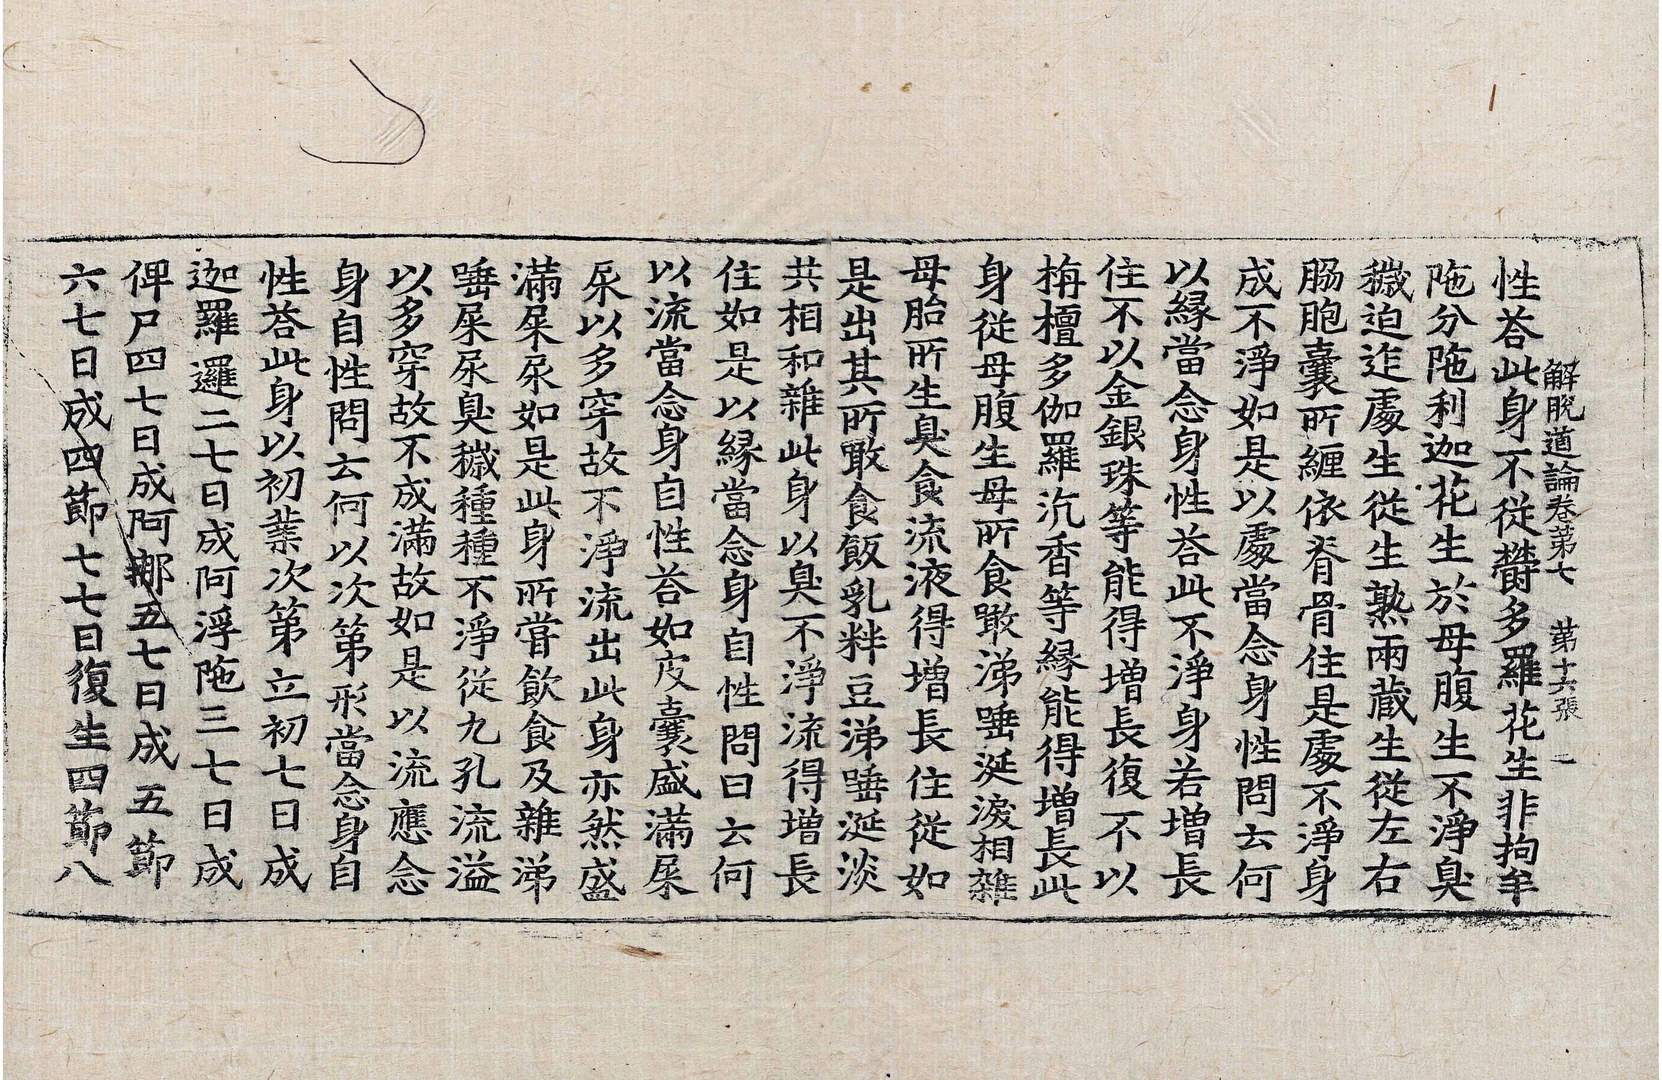 解脫道論卷第七　第十六張　二
性荅此身不從欝多羅花生非拘牟
陁分陁利迦花生於母腹生不淨臭
穢迫迮處生從生熟兩藏生從左右
肠胞囊所纏依脊骨住是處不淨身
成不淨如是以處當念身性問云何
以緣當念身性荅此不淨身若增長
住不以金銀珠等能得增長復不以
栴檀多伽羅沉香等緣能得增長此
身從母腹生母所食噉涕唾涎淚相雜
母胎所生臭食流液得增長住從如
是出其所噉食飯乳粖豆涕唾涎淡
共相和雜此身以臭不淨流得增長
住如是以緣當念身自性問曰云何
以流當念身自性荅如皮囊盛滿屎
尿以多穿故不淨流出此身亦然盛
滿屎尿如是此身所嘗飲食及雜涕
唾屎尿臭穢種種不淨從九孔流溢
以多穿故不成滿故如是以流應念
身自性問云何以次第形當念身自
性荅此身以初業次第立初七日成
迦羅邏二七日成阿浮陁三七日成
俾尸四七日成阿那五七日成五節
六七日成四節七七日復生四節八